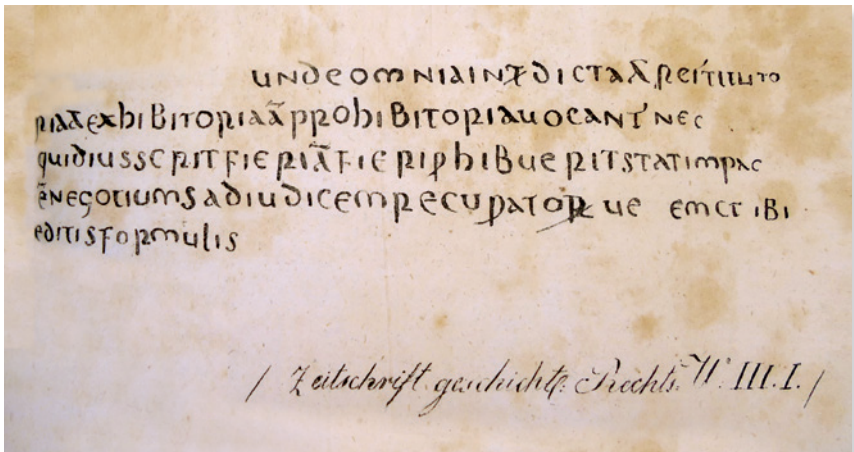 undeomniainṫdictaā reſtituto
riaāexhibitoriaāprohibitoriauocant' nec
quidiusscritfieriāfieriꝓhibueritstatimpac
ēnegotiumsadiudicemrecuꝑatorue emct ibi
editisformulis
/ Zeitschrift. geschichtl. Rechts. W. III. I. /